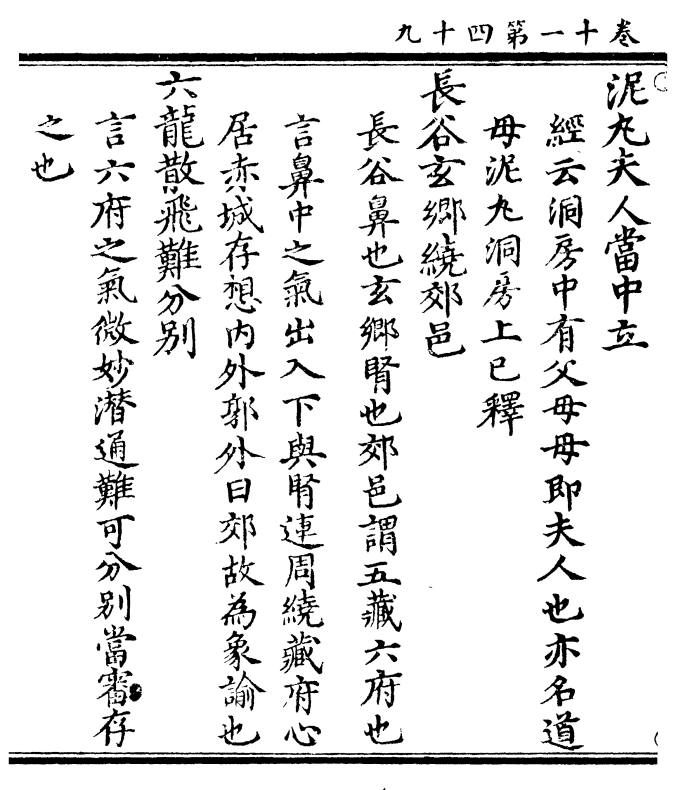 卷十一第四十九
泥丸夫人當中立
經云洞房中有父母母即夫人也亦名道
母泥丸洞房上已釋
長谷玄鄉繞郊邑
長谷鼻也玄鄉腎也郊邑謂五藏六府也
言鼻中之氣出入下與腎連周繞藏府心
居赤城存想内外郭外曰郊故為象諭也
六龍散飛難分别
言六府之氣微妙潜通難可分别當審存
之也